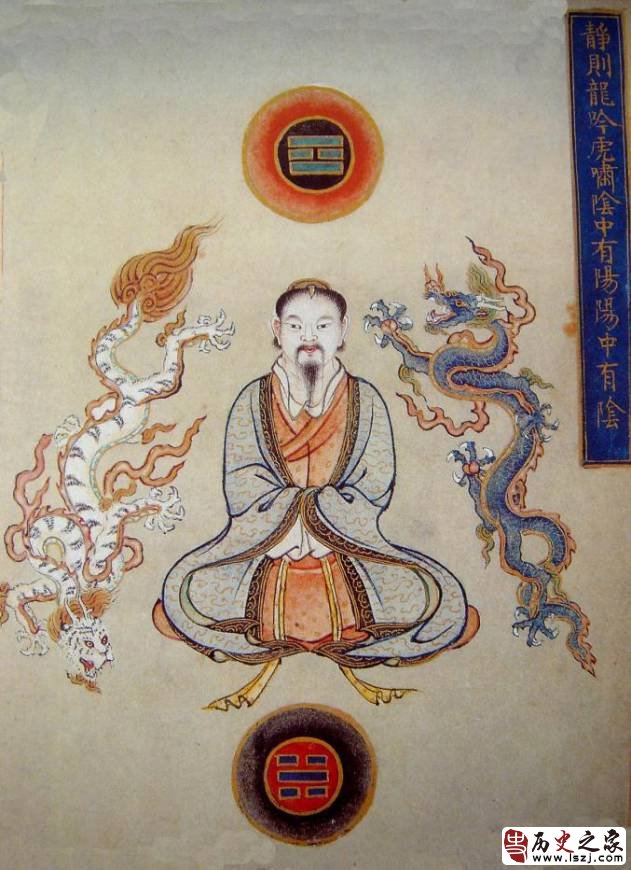 靜則龍吟虎嘯陰中有陽陽中有陰
历史之家
www.lszj.com